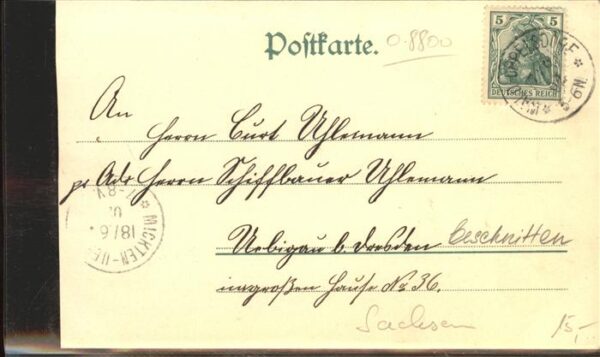 Postkarte.
0.8800
5 5
DEUTSCHES REICH
An
Herrn Curt Uhlemann
pr Adr Herrn Schiffbauer Uhlemann
Uebigau b. Dresden
Beschnitten
im großen Hause No 36.
Sachsen
15,-
7-8V.
18/6.
MICKTEN-UE